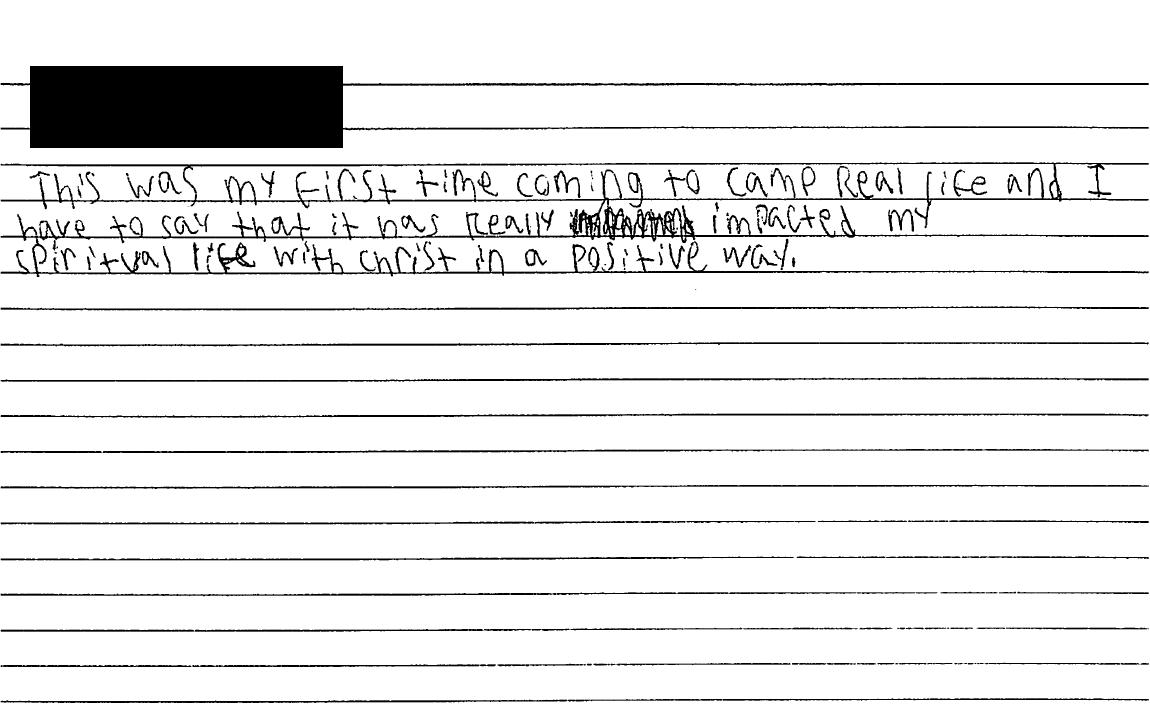 This was my first time coming to camp Real life and I
have to say that it has Really impacted my
spiritual life with christ in a positive way.